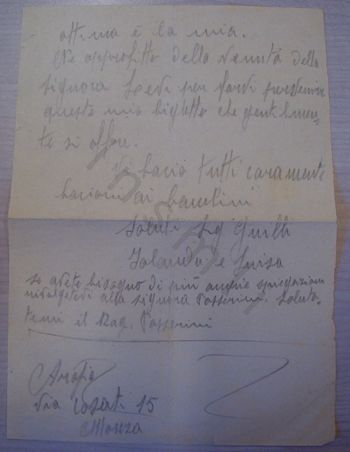 ottima è la mia.
Ne approfitto della venuta della
signora Levi per farvi pervenire
questo mio biglietto che gentilmen-
te si offre.
Vi bacio tutti caramente
bacioni ai bambini
Saluti Sig
Jolanda e Luisa
se avete bisogno di più ampie spiegazioni
rivolgetevi alla signora Passerini. Saluta-
temi il Rag. Passerini
Via Casati 15
Monza